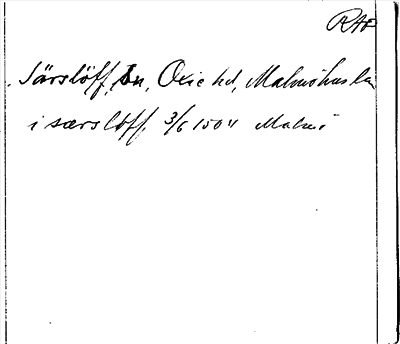 RAÖ
Särslöff, sn, Oxie hd, Malmöhus län
i særsløff. 3/6 1504 Malmö